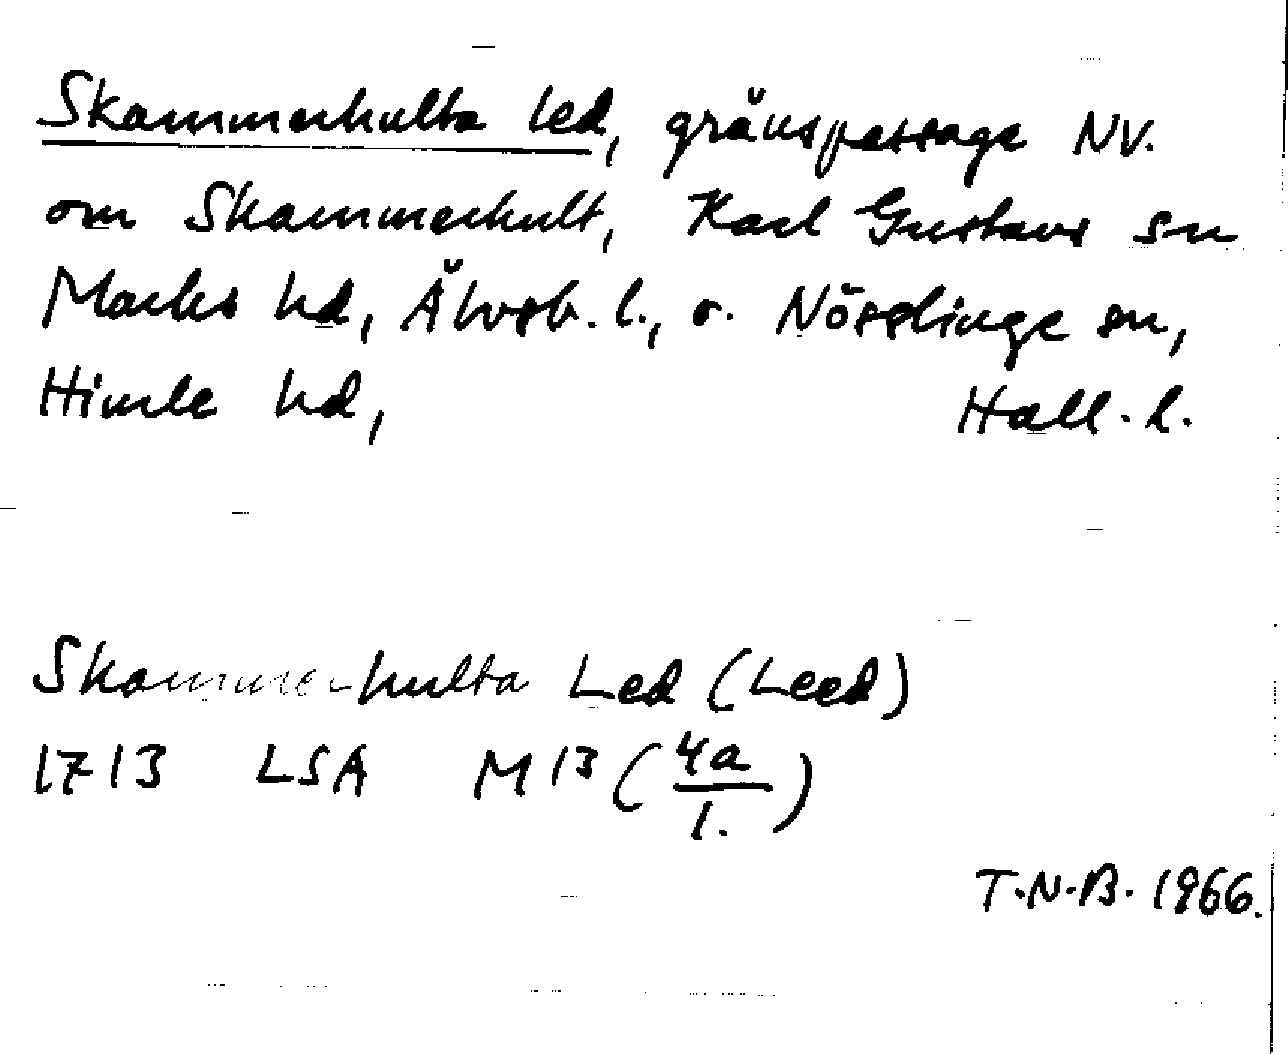 Skammerhulta led, gränspassage NV.
om Skammerhult, Karl Gustavs sn
Marks hd, Älvsb. l., o. Nösslinge sn,
Himle hd, Hall. l.
Skammerhulta Led (Leed)
1713 LSA M 13 (4a/1.)
T.N.B. 1966.